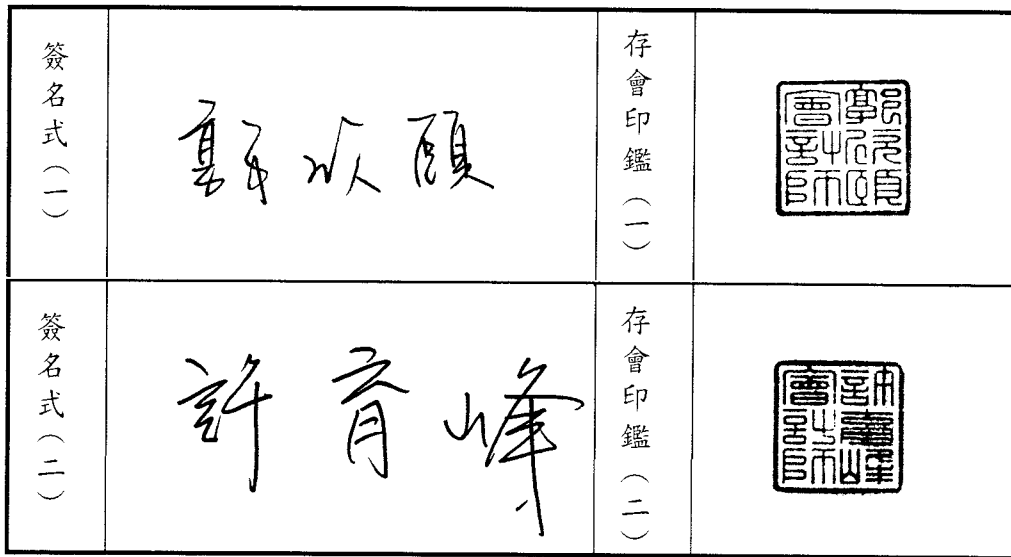 簽名式（一）
郭欣頤
存會印鑑（一）
郭欣頤會計師
簽名式（二）
許育峰
存會印鑑（二）
許育峰會計師